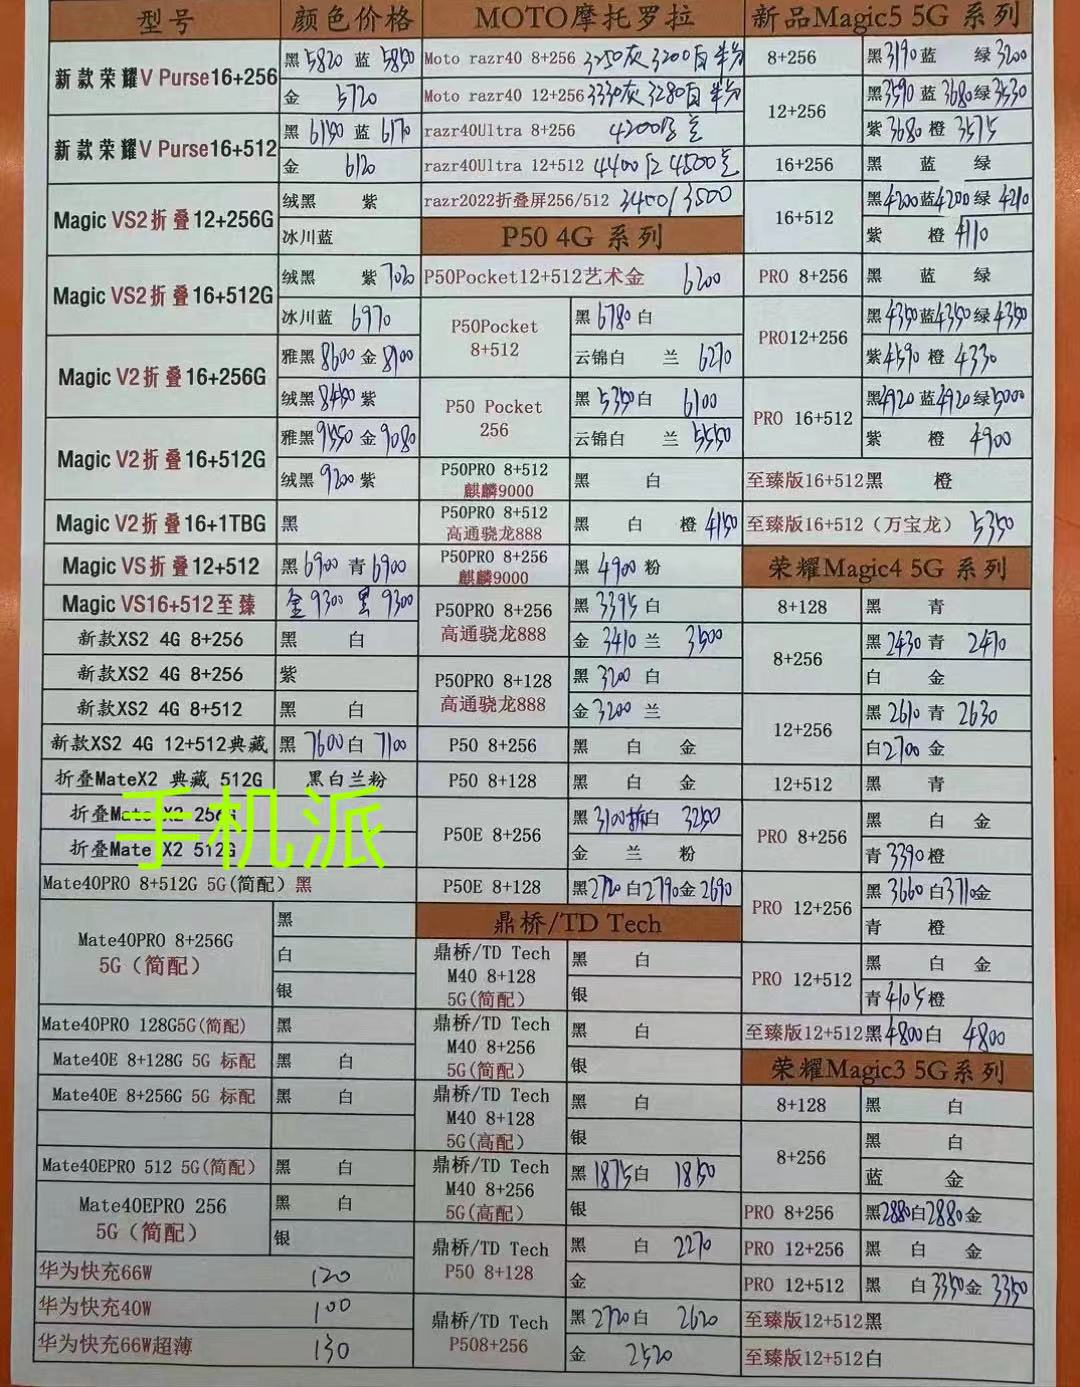 型号 颜色价格
新款荣耀V Purse16+256 黑5820 蓝 5850
金 5720
新款荣耀V Purse16+512 黑 6190 蓝 6170
金 6120
Magic VS2折叠12+256G 绒黑 紫
冰川蓝
Magic VS2折叠16+512G 绒黑 紫7020
冰川蓝 6970
Magic V2折叠16+256G 雅黑8600金8900
绒黑8450紫
Magic V2折叠16+512G 雅黑9550金9080
绒黑9200紫
Magic V2折叠16+1TBG 黑
Magic VS折叠12+512 黑6900 青6900
Magic VS16+512至臻 金9300 黑9300
新款XS2 4G 8+256 黑 白
新款XS2 4G 8+256 紫
新款XS2 4G 8+512 黑 白
新款XS2 4G 12+512典藏 黑7600白7100
折叠MateX2 典藏 512G 黑白兰粉
折叠Mate X2 256G
折叠Mate X2 512G
手机派
Mate40PRO 8+512G 5G(简配) 黑
Mate40PRO 8+256G 黑
5G（简配） 白
银
Mate40PRO 128G5G(简配) 黑
Mate40E 8+128G 5G 标配 黑 白
Mate40E 8+256G 5G 标配 黑 白
Mate40EPRO 512 5G(简配) 黑 白
Mate40EPRO 256 黑 白
5G（简配） 银
华为快充66W 120
华为快充40W 100
华为快充66W超薄 130
MOTO摩托罗拉
Moto razr40 8+256 3250灰3200白
Moto razr40 12+256 3330灰3280白
razr40Ultra 8+256 4200
razr40Ultra 12+512 4400 4500
razr2022折叠屏256/512 3400/3500
P50 4G 系列
P50Pocket12+512艺术金 6200
P50Pocket 黑6780白
8+512 云锦白 兰 6270
P50 Pocket 黑5350白 6100
256 云锦白 兰5550
P50PRO 8+512
麒麟9000 黑 白
P50PRO 8+512
高通骁龙888 黑 白 橙4150
P50PRO 8+256
麒麟9000 黑4900粉
P50PRO 8+256 黑3395白
高通骁龙888 金 3410 兰 3500
P50PRO 8+128 黑3200 白
高通骁龙888 金3200兰
P50 8+256 黑 白 金
P50 8+128 黑 白 金
P50E 8+256 黑3100拆白 3250
金 兰 粉
P50E 8+128 黑2720白2790金2690
鼎桥/TD Tech
鼎桥/TD Tech 黑 白
M40 8+128
5G(简配) 银
鼎桥/TD Tech 黑 白
M40 8+256
5G(简配) 银
鼎桥/TD Tech 黑 白
M40 8+128
5G(高配) 银
鼎桥/TD Tech 黑1875白 1850
M40 8+256
5G(高配) 银
鼎桥/TD Tech 黑 白2270
P50 8+128 金
鼎桥/TD Tech 黑2720白 2620
P508+256 金 2520
新品Magic5 5G 系列
8+256 黑3190蓝 绿3200
12+256 黑3590蓝3680绿3530
紫3680橙3575
16+256 黑 蓝 绿
16+512 黑4200蓝4200绿4210
紫 橙4110
PRO 8+256 黑 蓝 绿
PRO12+256 黑4350蓝4350绿4350
紫4590橙4330
PRO 16+512 黑4920蓝4920绿5000
紫 橙 4900
至臻版16+512黑 橙
至臻版16+512（万宝龙） 5350
荣耀Magic4 5G 系列
8+128 黑 青
8+256 黑2430青 2470
白 金
12+256 黑2610青 2630
白2700金
12+512 黑 青
PRO 8+256 黑 白 金
青3390橙
PRO 12+256 黑3660白3710金
青 橙
PRO 12+512 黑 白 金
青4105橙
至臻版12+512黑4800白 4800
荣耀Magic3 5G系列
8+128 黑 白
8+256 黑 白
蓝 金
PRO 8+256 黑2880白2880金
PRO 12+256 黑 白 金
PRO 12+512 黑 白3350金3350
至臻版12+512黑
至臻版12+512白